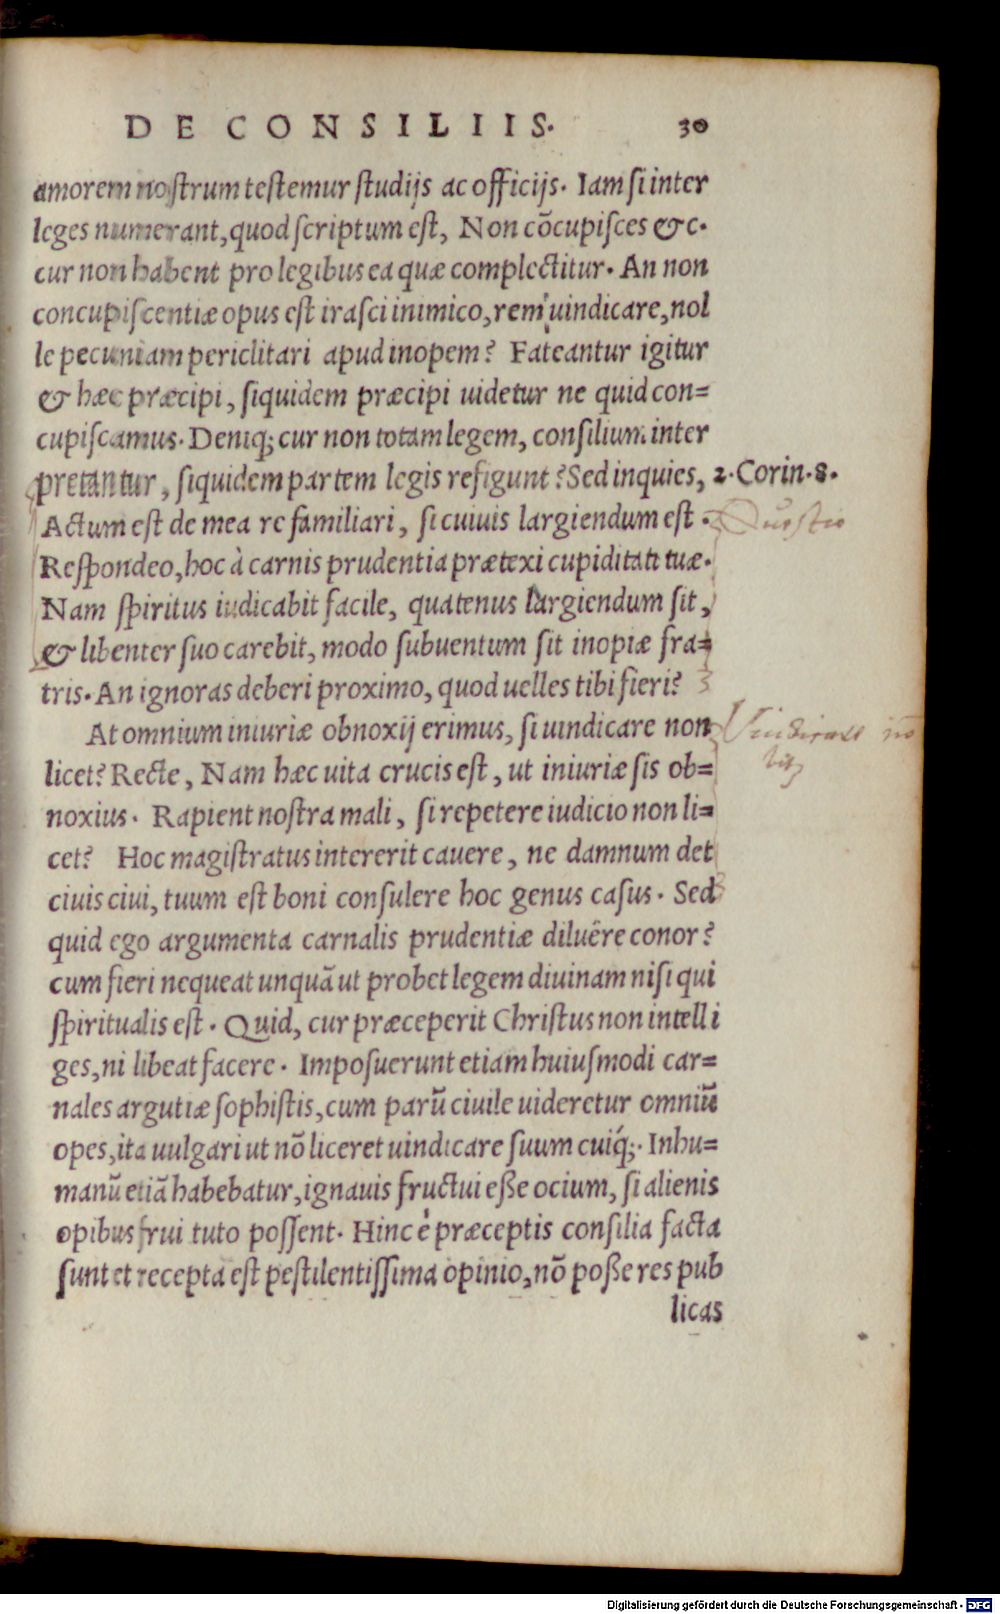 DE CONSILIIS. 30
amorem nostrum testemur studijs ac officijs. Iam si inter
leges numerant, quod scriptum est, Non cōcupisces &c.
cur non habent pro legibus ea quæ complectitur. An non
concupiscentiæ opus est irasci inimico, rem uindicare, nol
le pecuniam periclitari apud inopem? Fateantur igitur
& hæc præcipi, siquidem præcipi uidetur ne quid con=
cupiscamus. Deniq; cur non totam legem, consilium inter
pretantur, siquidem partem legis refigunt? Sed inquies, 2. Corin. 8.
Actum est de mea re familiari, si cuiuis largiendum est. Questio
Respondeo, hoc à carnis prudentia prætexi cupiditati tuæ.
Nam spiritus iudicabit facile, quatenus largiendum sit,
& libenter suo carebit, modo subuentum sit inopiæ fra=
tris. An ignoras deberi proximo, quod uelles tibi fieri?
At omnium iniuriæ obnoxij erimus, si uindicare non Vindicare nō
licet? Recte, Nam hæc uita crucis est, ut iniuriæ sis ob=
noxius. Rapient nostra mali, si repetere iudicio non li=
cet? Hoc magistratus intererit cauere, ne damnum det
ciuis ciui, tuum est boni consulere hoc genus casus. Sed
quid ego argumenta carnalis prudentiæ diluêre conor?
cum fieri nequeat unquā ut probet legem diuinam nisi qui
spiritualis est. Quid, cur præceperit Christus non intelli
ges, ni libeat facere. Imposuerunt etiam huiusmodi car=
nales argutiæ sophistis, cum parū ciuile uideretur omniū
opes, ita uulgari ut nō liceret uindicare suum cuiq́;. Inhu=
manū etiā habebatur, ignauis fructui eße ocium, si alienis
opibus frui tuto possent. Hinc è præceptis consilia facta
sunt et recepta est pestilentissima opinio, nō poße res pub
licas
Digitalisierung gefördert durch die Deutsche Forschungsgemeinschaft - DFG